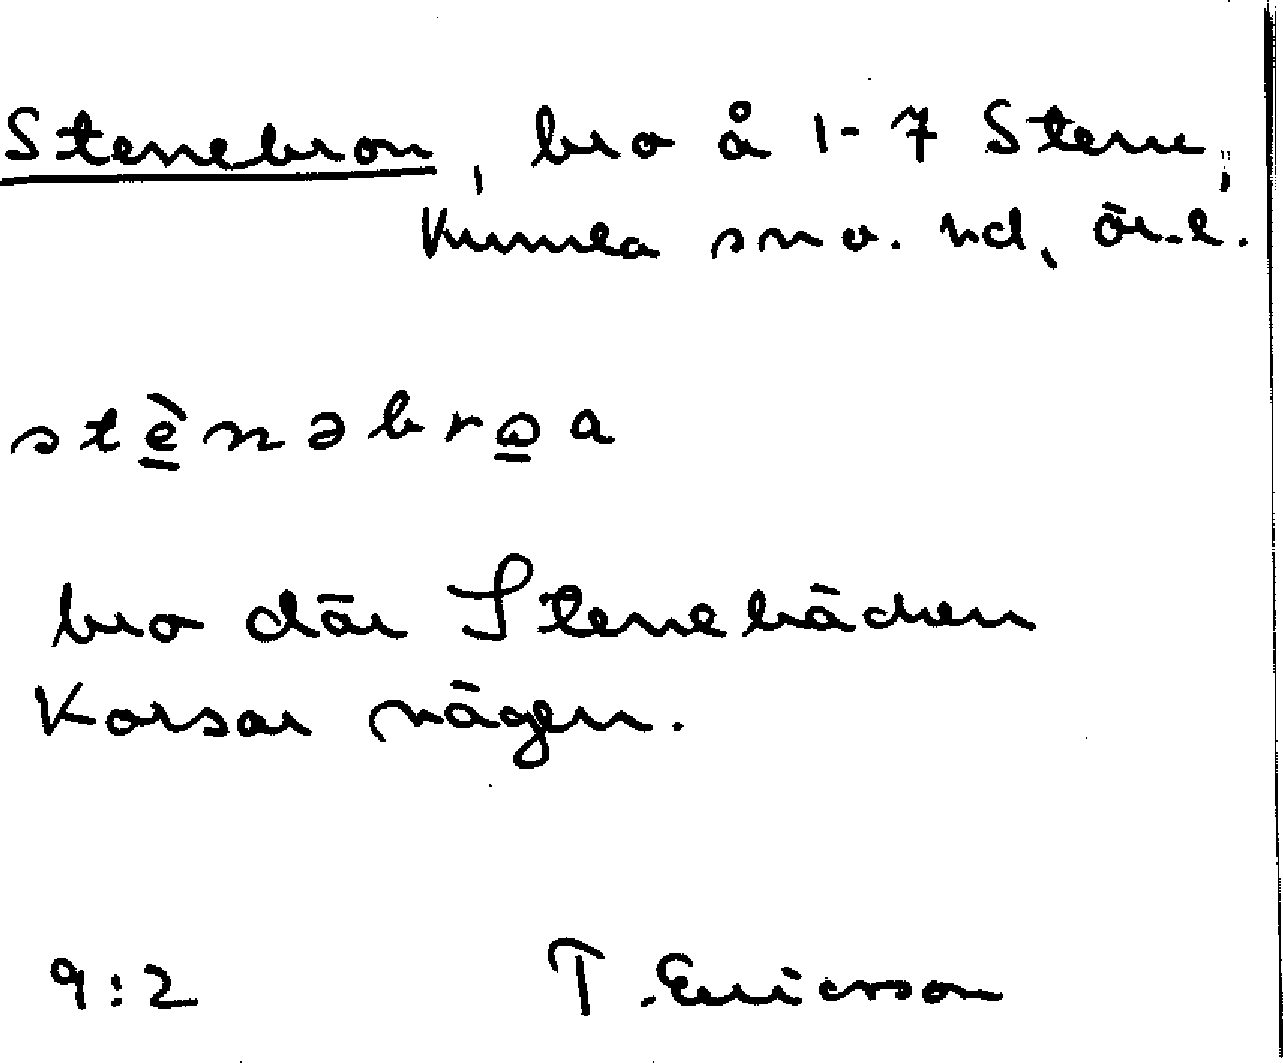 Stenebron, bro å 1-7 Stene,
Kumla sn o. hd, Ör.l.
stè̲nəbro̲a
bro där Stenebäcken
Korsar vägen.
9:2 T. Ericsson